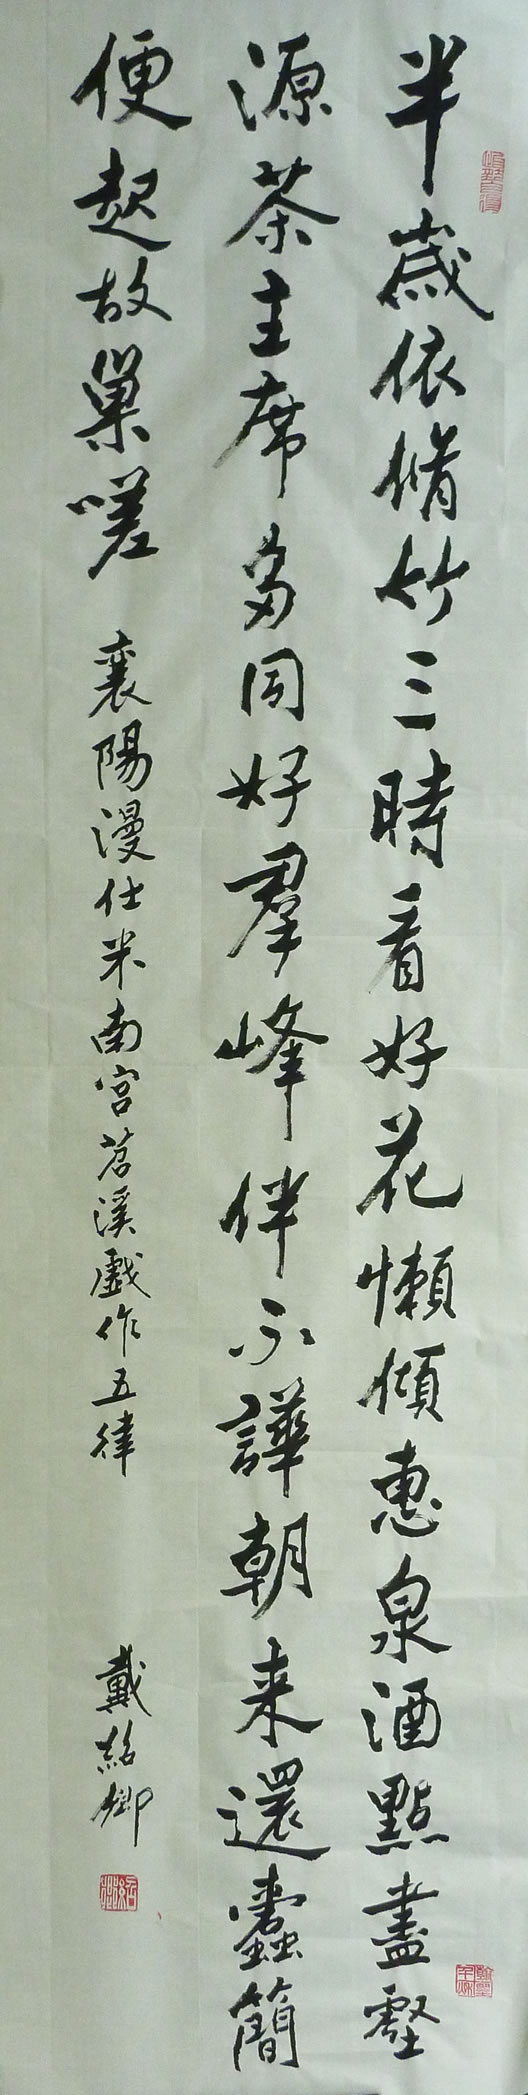 半歲依脩竹三時看好花懶傾惠泉酒點盡壑
源茶主席多同好羣峰伴不譁朝来還蠹簡
便起故巢嗟 襄陽漫仕米南宫苕溪戲作五律 戴紹卿